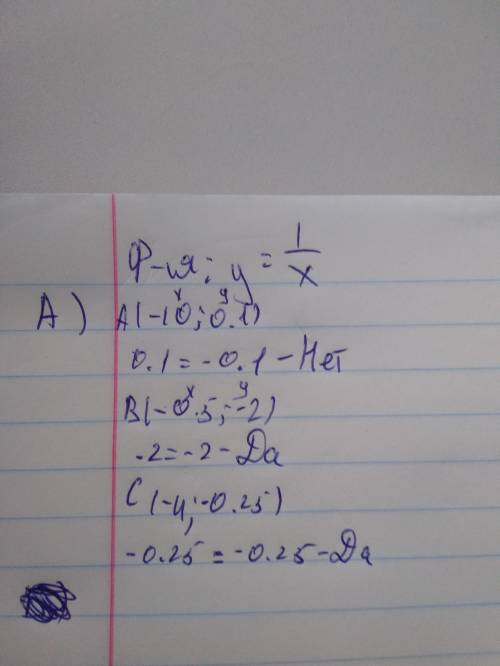 Ф-ия: y = 1/x
А) A(-10; 0.1)
x y
0.1 = -0.1 - Нет
B(-0.5; -2)
x y
-2 = -2 - Да
C(-4; -0.25)
-0.25 = -0.25 - Да